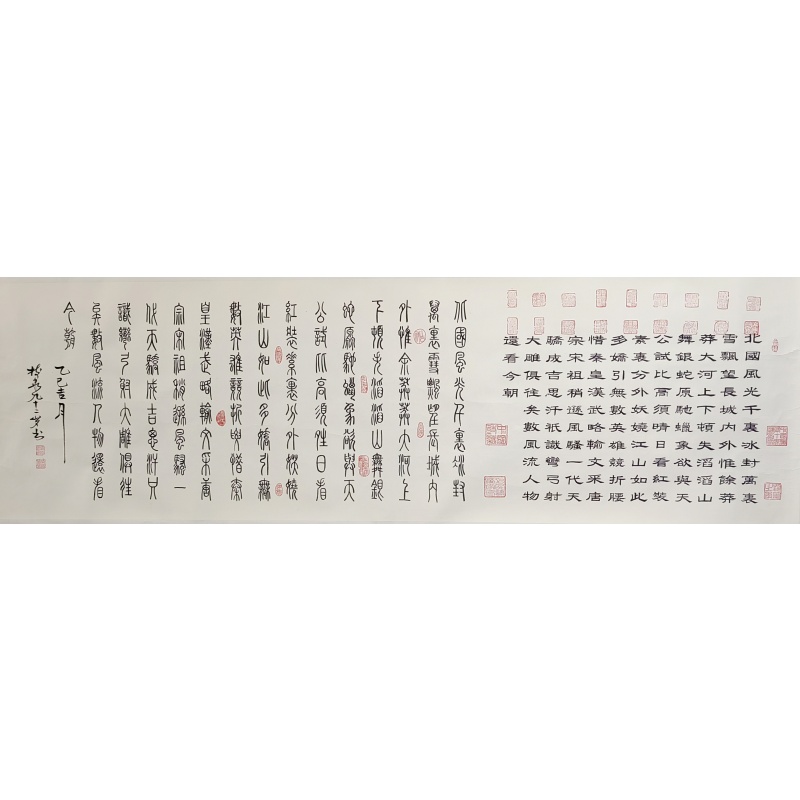 北國風光千裏冰封萬裏
雪飄望長城內外惟餘莽
莽大河上下頓失滔滔山
舞銀蛇原馳蠟象欲與天
公試比高須晴日看紅裝
素裏分外妖嬈江山如此
多嬌引無數英雄競折腰
惜秦皇漢武略輸文采唐
宗宋祖稍遜風騷一代天
驕成吉思汗祇識彎弓射
大雕俱往矣數風流人物
還看今朝
北國風光千裏冰封
萬裏雪飄望長城內
外惟余莽莽大河上
下頓失滔滔山舞銀
蛇原馳蠟象欲與天
公試比高須晴日看
紅裝素裏分外妖嬈
江山如此多嬌引無
數英雄競折腰惜秦
皇漢武略輸文采唐
宗宋祖稍遜風騷一
代天驕成吉思汗只
識彎弓射大雕俱往
矣數風流人物還看
今朝
乙巳吉月
九十二岁书